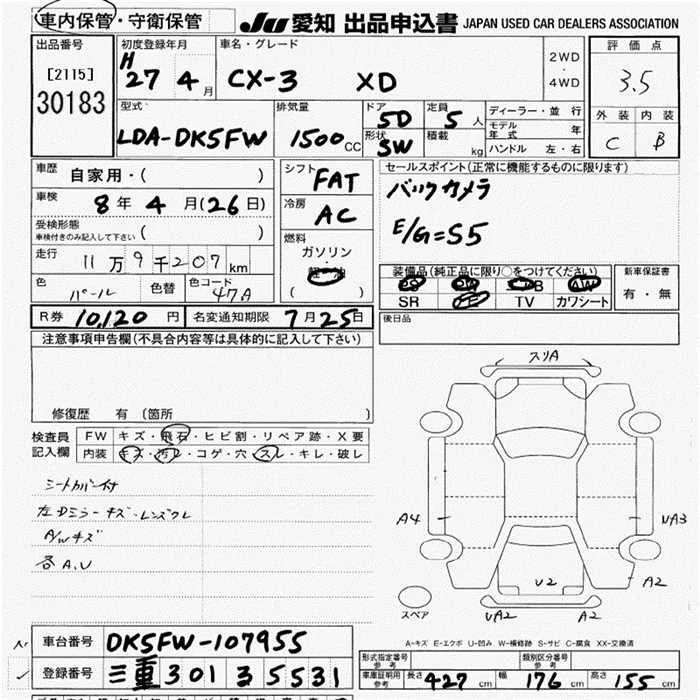 車内保管・守衛保管
JU 愛知 出品申込書 JAPAN USED CAR DEALERS ASSOCIATION
出品番号
[2115]
30183
初度登録年月
H 27 4 月
車名・グレード
CX-3 XD
2WD
・
4WD
評価点
3.5
外装 内装
C B
型式
LDA-DK5FW
排気量
1500 CC
ドア 5D
形状 SW
定員 5 人
積載 kg
ディーラー・並行
モデル年式 年
ハンドル 左・右
車歴
自家用・( )
車検
8 年 4 月 (26 日)
受検形態
車検付きのみ記入して下さい ( )
走行
11 万 9 千 207 km
色
パール
色替
色コード
47A
シフト
FAT
冷房
AC
燃料
ガソリン
軽油
( )
セールスポイント(正常に機能するものに限ります)
バックカメラ
E/G=S5
装備品(純正品に限り○をつけてください)
PS PW AB AW
SR TV カワシート
新車保証書
有・無
R券 10,120 円
名変通知期限 7 月 25 日
後日品
注意事項申告欄(不具合内容等は具体的に記入して下さい)
修復歴 有 (箇所 )
検査員
記入欄
FW キズ・飛石・ヒビ割・リペア跡・X要
内装 キズ・汚レ・コゲ・穴・スレ・キレ・破レ
シートカバー付
左Dミラーキズ・レンズワレ
A/Wキズ
各A.U
スリA
A4
UA3
U2
A2
スペア
UA2
A2
A-キズ E-エクボ U-凹み W-補修跡 S-サビ C-腐食 XX-交換済
車台番号 DK5FW-107955
登録番号 三重 301 ま 5531
形式指定番号
参考
類別区分番号
参考
車庫証明用
参考
長さ 427 cm
幅 176 cm
高さ 155 cm